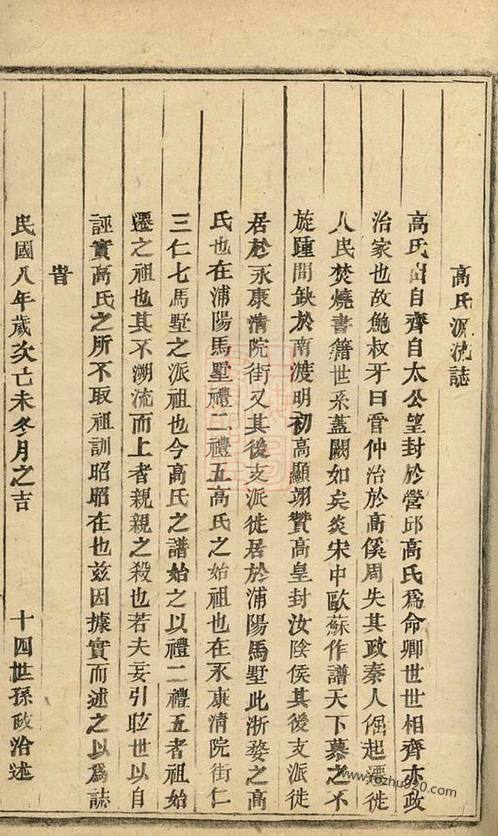 高氏源流誌
高氏出自齊自太公望封於營邱高氏爲命卿世世相齊亦政
治家也故鮑叔牙曰管仲治於高傒周失其政秦人倔起遷徙
人民焚燒書籍世系蓋闕如矣炎宋中歐蘇作譜天下慕之不
旋踵間缺於南渡明初高顯翊贊高皇封汝陰侯其後支派徙
居於永康清院街又其後支派徙居於浦陽馬墅此浙婺之高
氏也在浦陽馬墅禮二禮五高氏之始祖也在永康清院街仁
三仁七馬墅之派祖也今高氏之譜始之以禮二禮五者祖始
遷之祖也其不溯流而上者親親之殺也若夫妄引眩世以自
誣實高氏之所不取祖訓昭昭在也兹因據實而述之以爲誌
旹
民國八年歲次己未冬月之吉 十四世孫政治述
www.rozhu920.com